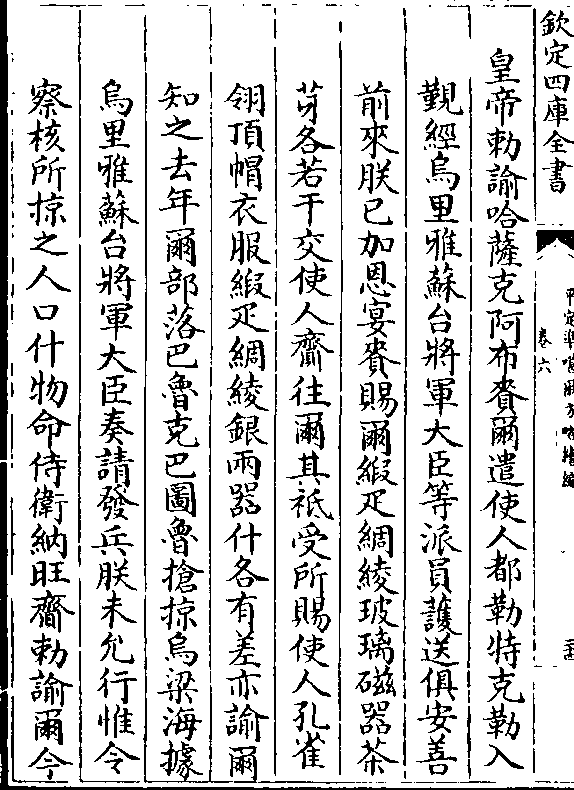 欽定四庫全書
平定準噶爾方略續編
卷六
皇帝勅諭哈薩克阿布賚爾遣使人都勒特克勒入
覲經烏里雅蘇台將軍大臣等派員護送俱安善
前來朕已加恩宴賚賜爾緞疋綢綾玻璃磁器茶
芽各若干交使人齎往爾其祗受所賜使人孔雀
翎頂帽衣服緞疋綢綾銀兩器什各有差亦諭爾
知之去年爾部落巴魯克巴圖魯搶掠烏梁海據
烏里雅蘇台將軍大臣奏請發兵朕未允行惟令
察核所掠之人口什物命侍衛納旺齎勅諭爾今